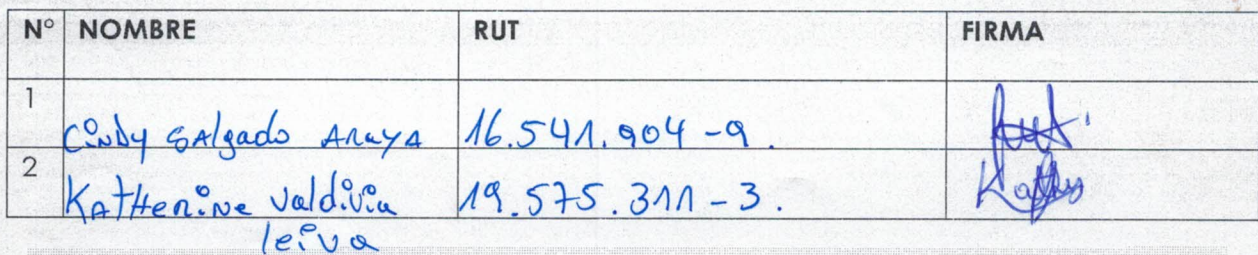 N° NOMBRE RUT FIRMA
1 Cindy Salgado Araya 16.541.904-9.
2 Katherine Valdivia 19.575.311-3. Kathy
leiva